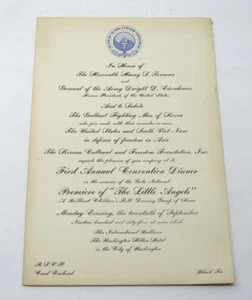 In Honor of
The Honorable Harry S. Truman
and
General of the Army Dwight D. Eisenhower
Former Presidents of the United States
And to Salute
The Gallant Fighting Men of Korea
who join ranks with their comrades-in-arms
The United States and South Viet Nam
in defense of freedom in Asia
The Korean Cultural and Freedom Foundation, Inc.
requests the pleasure of your company at its
First Annual Convention Dinner
on the occasion of the Gala National
Premiere of "The Little Angels"
A Brilliant Children's Folk Dancing Group of Korea
Monday Evening, the twentieth of September
Nineteen hundred and sixty-five, at seven o'clock
The International Ballroom
The Washington Hilton Hotel
in the City of Washington
R.S.V.P.
Card Enclosed
Black Tie